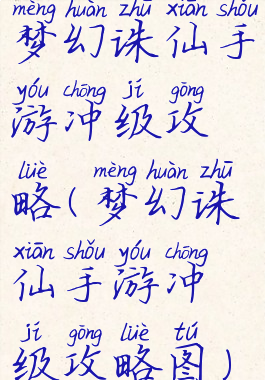 mèng huàn zhū xiān shǒu
梦幻诛仙手
yóu chōng jí gōng
游冲级攻
lüè mèng huàn zhū
略(梦幻诛
xiān shǒu yóu chōng
仙手游冲
jí gōng lüè tú
级攻略图)